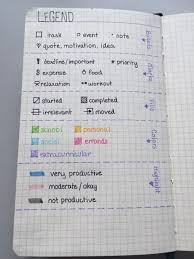 LEGEND
task event note
quote, motivation, idea
deadline/important priority
expense food
relaxation workout
started completed
irrelevant moved
school personal
social errands
extracurricular
very productive
moderate/okay
not productive